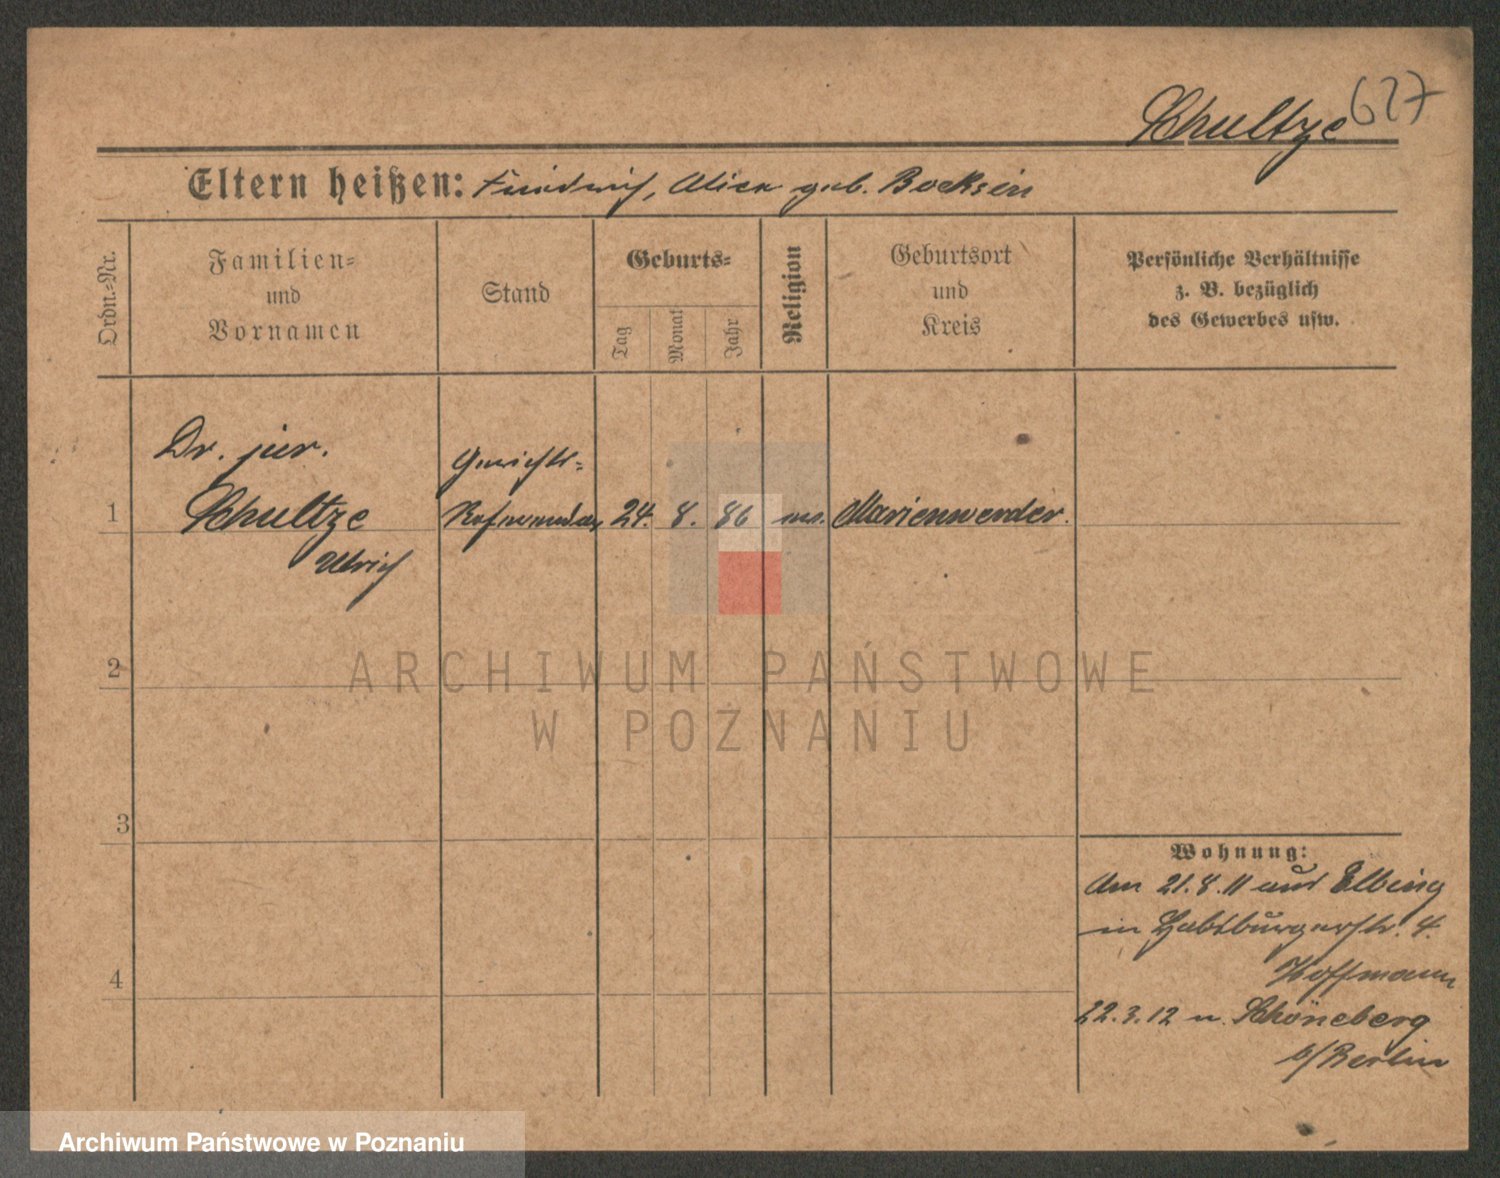 Schultze 627
Eltern heißen: Friedrich, Alice geb. Bocksin
Ordn.-Nr.
Familien-
und
Vornamen
Stand
Geburts-
Tag
Monat
Jahr
Religion
Geburtsort
und
Kreis
Persönliche Verhältnisse
z. B. bezüglich
des Gewerbes usw.
Dr. jur.
Gerichts-
1 Schultze Referendar 24. 8. 86 Marienwerder.
Ulrich
2
ARCHIWUM PAŃSTWOWE
W POZNANIU
3
Wohnung:
Am 21.8.11 aus Elbing
in Habsburgerstr. 4.
Hoffmann
4
22.3.12 n. Schöneberg
b/Berlin
Archiwum Państwowe w Poznaniu